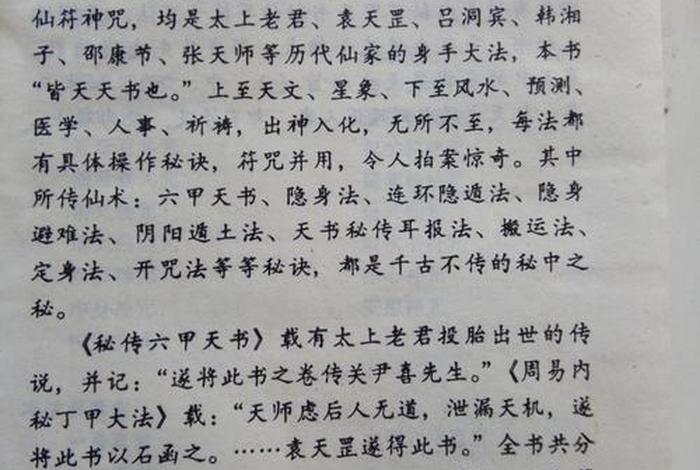 仙符神咒，均是太上老君、袁天罡、吕洞宾、韩湘
子、邵康节、张天师等历代仙家的身手大法，本书
“皆天天书也。”上至天文、星象、下至风水、预测、
医学、人事、祈祷，出神入化，无所不至，每法都
有具体操作秘诀，符咒并用，令人拍案惊奇。其中
所传仙术：六甲天书、隐身法、连环隐遁法、隐身
避难法、阴阳遁土法、天书秘传耳报法、搬运法、
定身法、开咒法等等秘诀，都是千古不传的秘中之
秘。
《秘传六甲天书》载有太上老君投胎出世的传
说，并记：“遂将此书之卷传关尹喜先生。”《周易内
秘丁甲大法》载：“天师虑后人无道，泄漏天机，遂
将此书以石函之。……袁天罡遂得此书。”全书共分